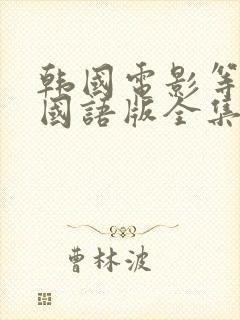 韩國電影等
國語版全集
曹林波